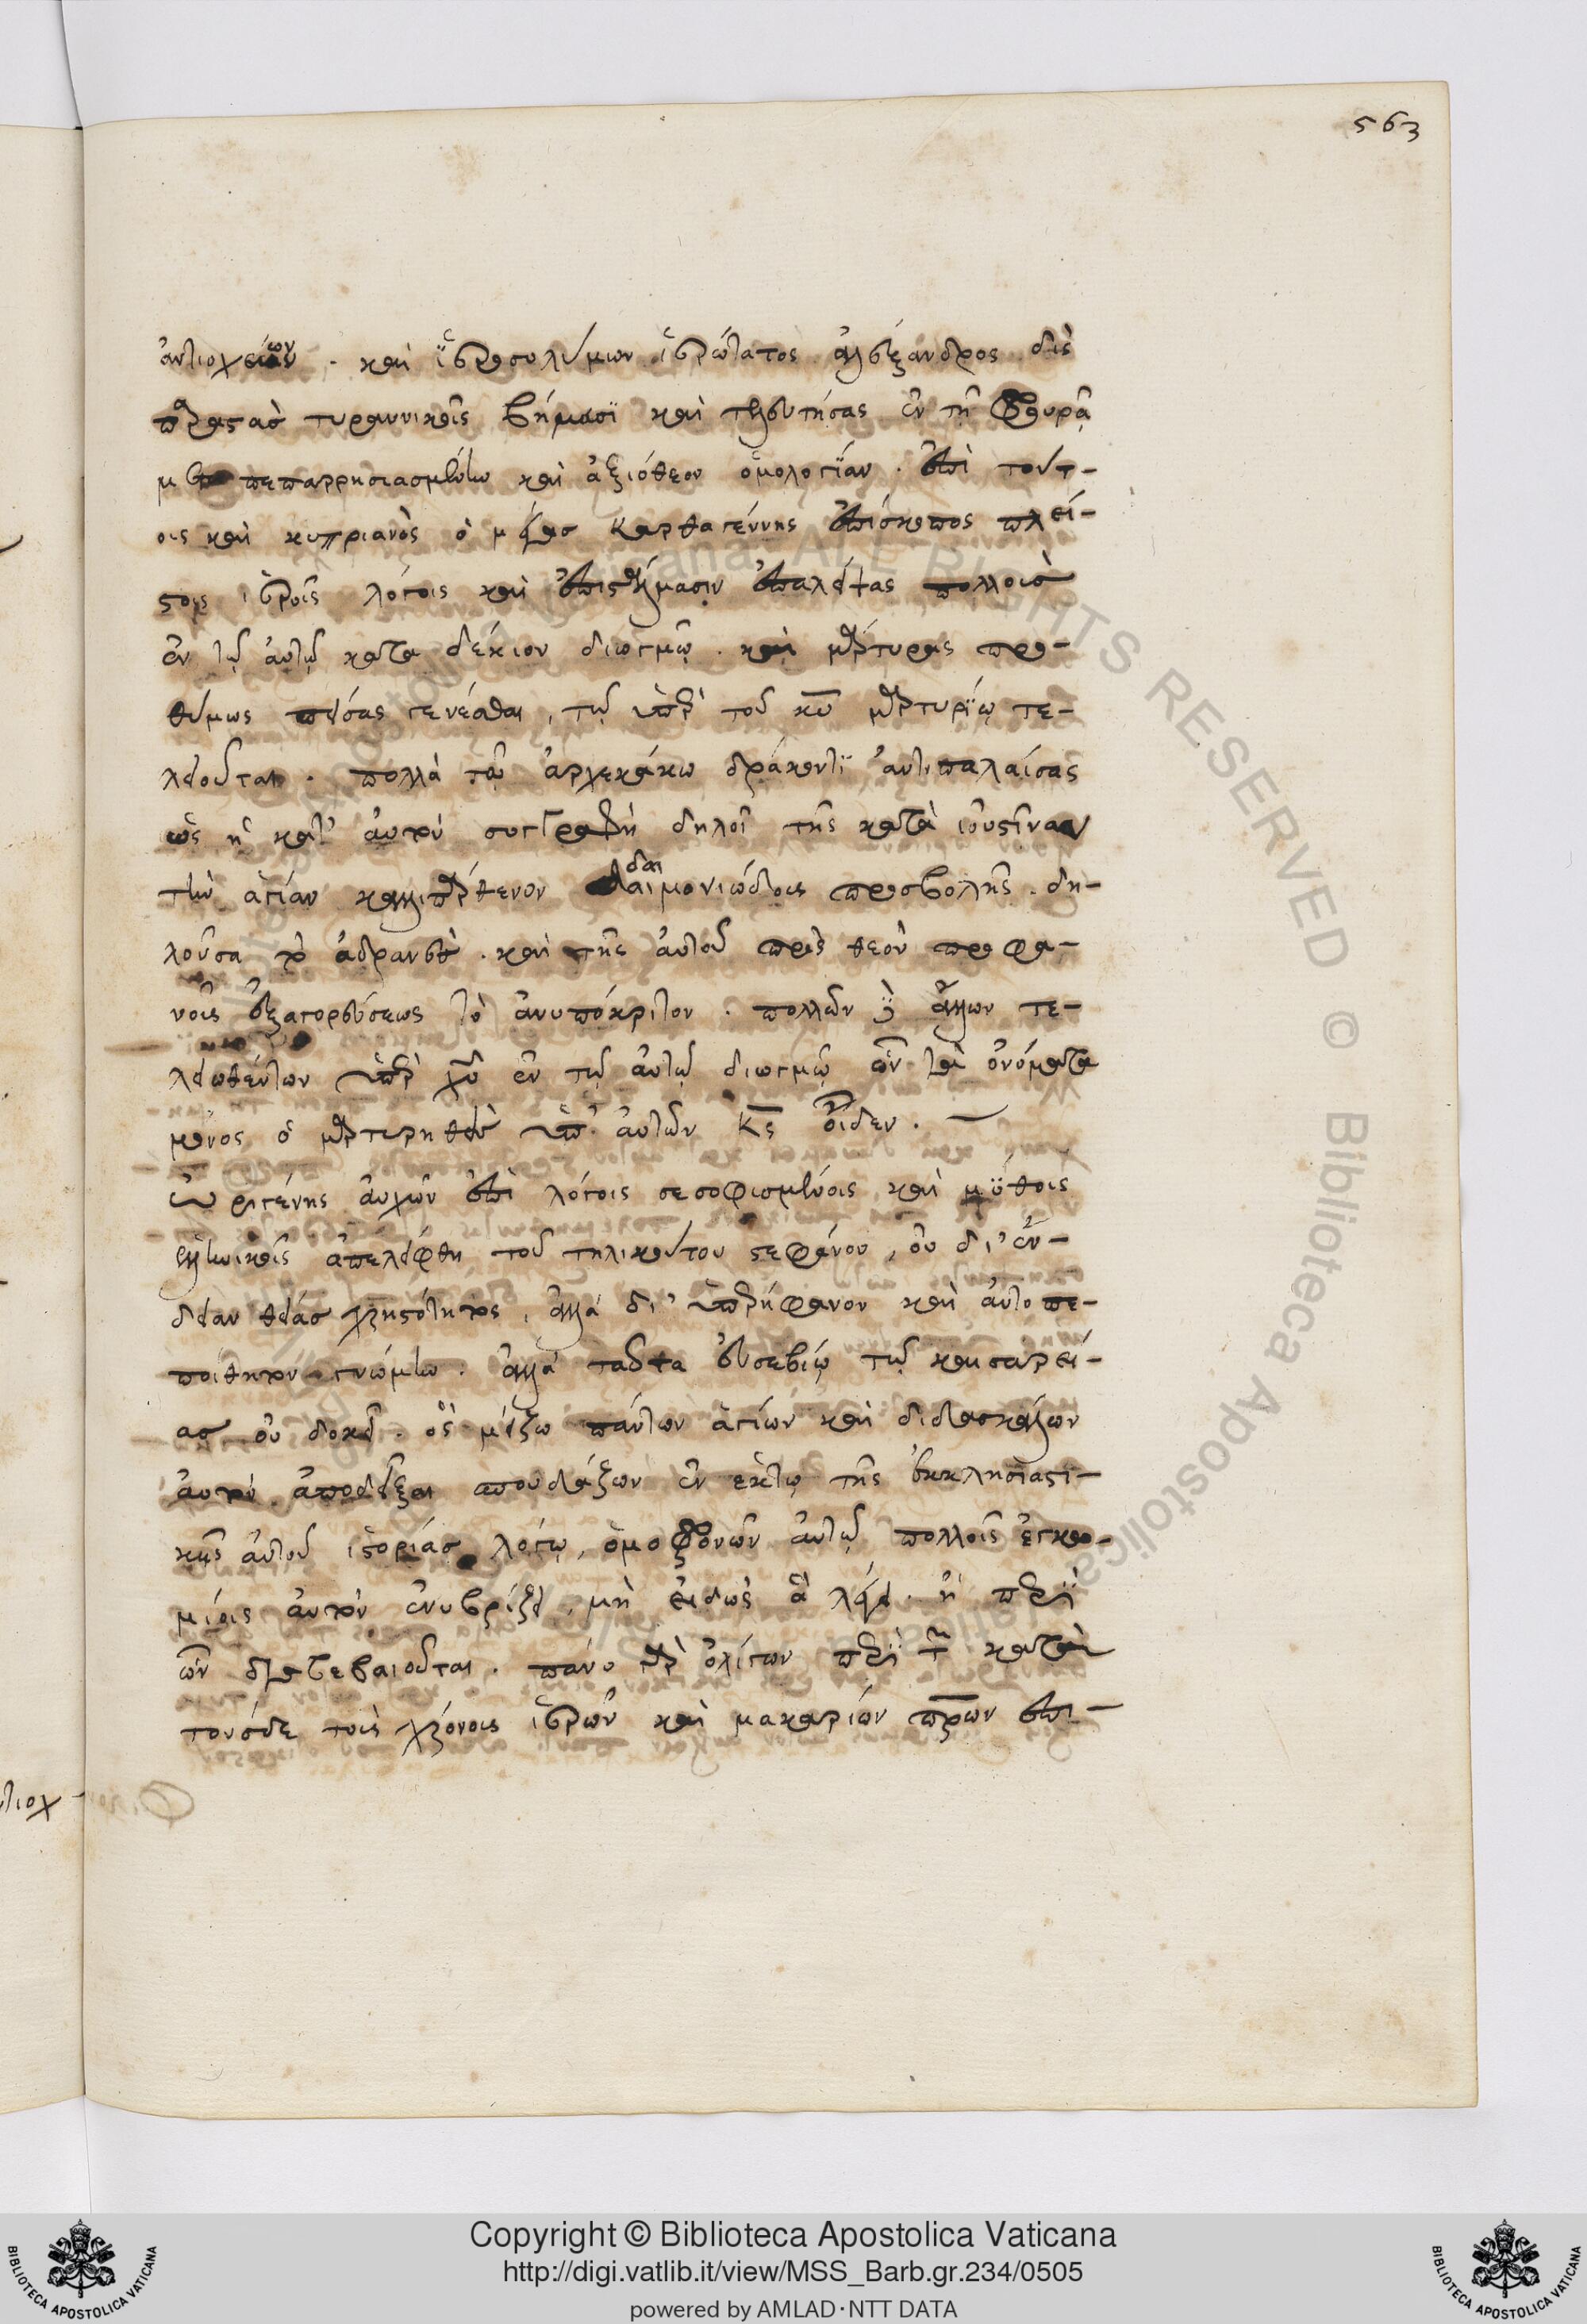 563
ἀντιοχείων . καὶ ἱεροσολύμων ἱερώτατος ἀλέξανδρος δὶς
παραστὰς τυραννικοῖς βήμασϊ καὶ τελευτήσας ἐν τῇ φρουρᾷ
πεπαρρησιασμένην καὶ ἀξιόθεον ὁμολογΐαν . ἐπὶ τούτ-
οις καὶ κυπριανὸς ὁ μέγας καρθαγέννης ἐπίσκοπος πλεί-
στοις ἱεροῖς λόγοις καὶ ἐπιστήμασιν ἐπαλείψας πολλοὺς
ἐν τῷ αὐτῷ κατα δεκιον διωγμῷ . καὶ μάρτυρας προ-
θύμως πείσας γενέσθαι , τῷ ὑπὲρ τοῦ κυ μαρτυρίῳ τε-
λειοῦται . πολλὰ τῷ ἀρχεκάκω δράκοντϊ ἀντιπαλαίσας
ὡς ἡ κατ' αὐτὸν συγγραφὴ δηλοῖ τῆς κατὰ ἰουστῖναν
τὴν ἁγίαν καλλιπάρθενον δαιμονιώδους προσβολῆς . δη-
λοῦσα τὸ ἀδρανὲς . καὶ τῆς αὐτοῦ πρὸς θεὸν προφα-
νοῦς ἐξαγορεύσεως τὸ ἀνυπόκριτον . πολλῶν δὲ ἄλλων τε-
λειωθέντων ὑπὲρ χυ ἐν τῷ αὐτῷ διωγμῷ ὧν τὰ ὀνόματα
μόνος ὁ μαρτυρηθεὶς ὑπ' αὐτῶν κς οἶδεν .
Ὠριγένης αὐχῶν ἐπὶ λόγοις σεσοφισμένοις καὶ μύθοις
ἑλληνικοῖς ἀπελείφθη τοῦ τηλικούτου στεφάνου , οὐ δι' ἔν-
δειαν θείας χρηστότητος , ἀλλὰ δι' ὑπερήφανον καὶ αὐτοπε-
ποίθητον γνώμην . ἀλλὰ ταῦτα εὐσεβίῳ τῷ καισαρεί-
ας οὐ δοκεῖ . ὃς μείζω πάντων ἁγίων καὶ διδασκάλων
αὐτὸν ἀποδεῖξαι σπουδάζων ἐν ἕκτῳ τῆς ἐκκλησιαστι-
κῆς αὐτοῦ ἱστορίας λόγῳ , ὁμοφρονῶν αὐτῷ πολλοῖς ἐγκω-
μίοις αὐτὸν ἐνυβρίζει , μὴ εἰδὼς ἃ λέγει . ἢ περὶ
ὧν διαβεβαιοῦται . πάνυ γὰρ ὀλίγων περὶ τῶν κατὰ
τούσδε τοὺς χρόνους ἱερῶν καὶ μακαρίων πρων ἐπι-
Copyright © Biblioteca Apostolica Vaticana
http://digi.vatlib.it/view/MSS_Barb.gr.234/0505
powered by AMLAD·NTT DATA